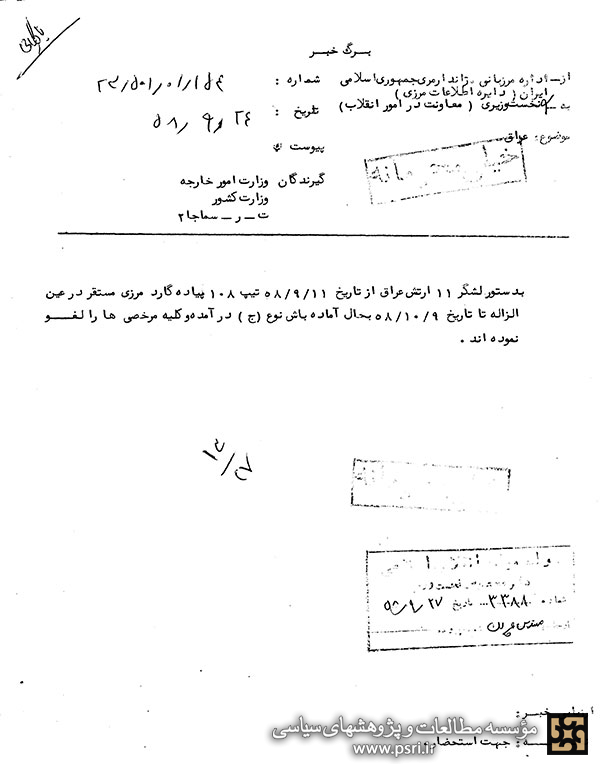 بایگانی
برگ خبر
از ـ اداره مرزبانی ـ ژاندارمری جمهوری اسلامی ایران ( دایره اطلاعات مرزی )
شماره :
به ـ نخست وزیری ( معاونت در امور انقلاب )
تاریخ : ۵۸/۹/۲۴
موضوع : عراق
پیوست
خیلی محرمانه
گیرندگان وزارت امور خارجه
وزارت کشور
ت ـ ر ـ سماجا ۲
بدستور لشگر ۱۱ ارتش عراق از تاریخ ۵۸/۹/۱۱ تیپ ۱۰۸ پیاده گارد مرزی مستقر در عین
الزاله تا تاریخ ۵۸/۱۰/۹ بحال آماده باش نوع (ج ) در آمده و کلیه مرخصی ها را لغــو
نموده اند .
شماره ۳۳۸۸ تاریخ ۵۸/۹/۲۷
خبر :
جهت استحضار
مؤسسه مطالعات و پژوهشهای سیاسی
www.psri.ir